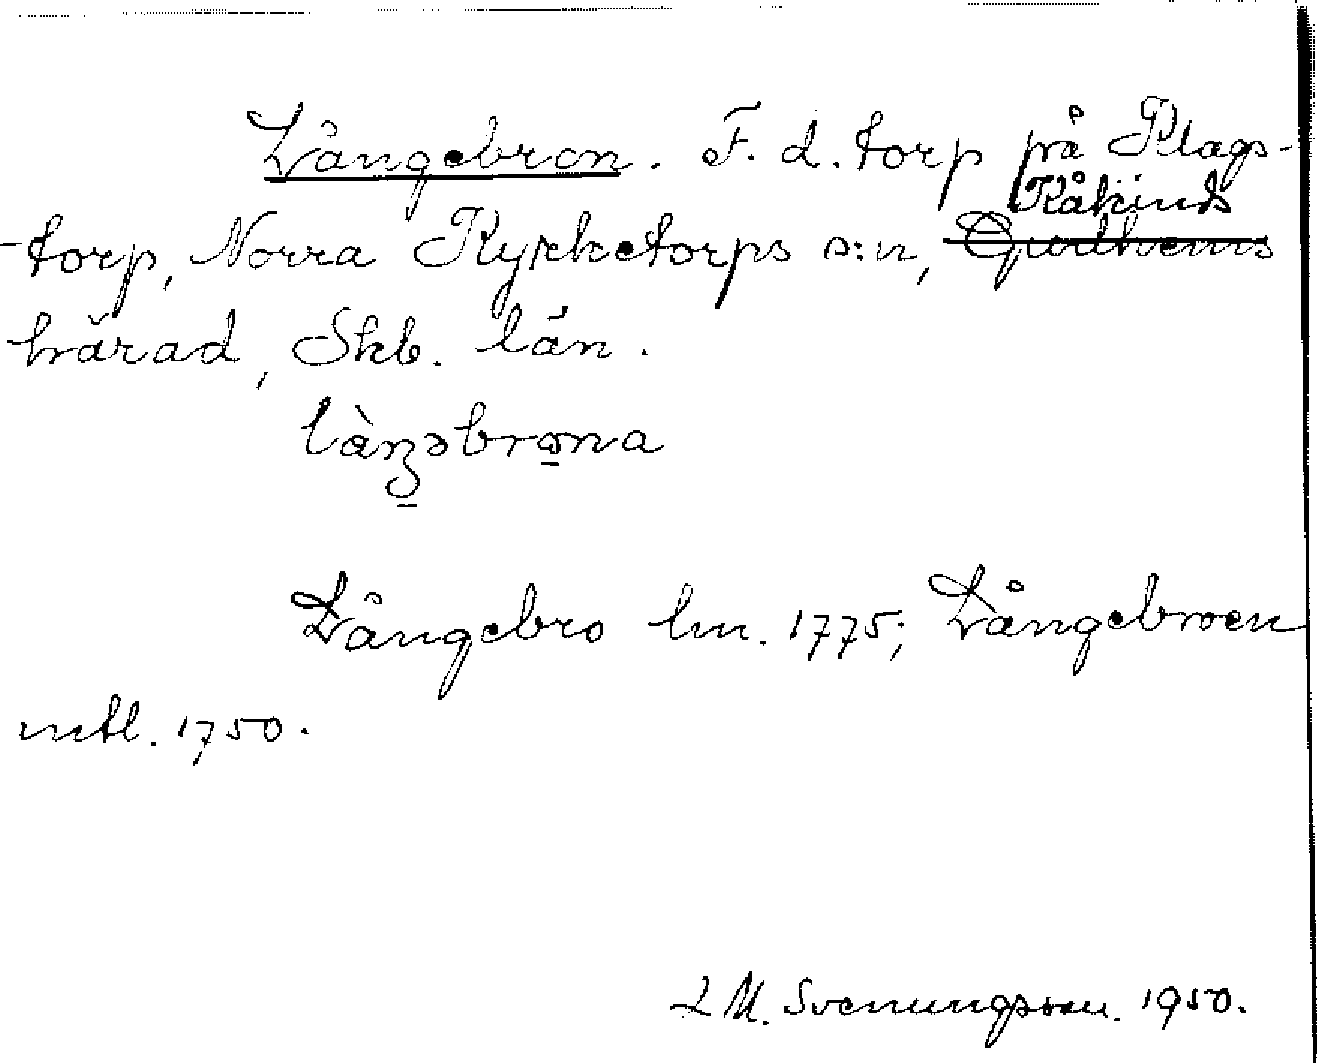 Långebron. F. d. torp på Plags-
Kåkinds
torp, Norra Kyrketorps s:n, Gudhems
härad, Skb. län.
làŋəbrona
Långebro hm. 1775; Långebroen
mtl. 1750.
L M. Svenungsson. 1950.